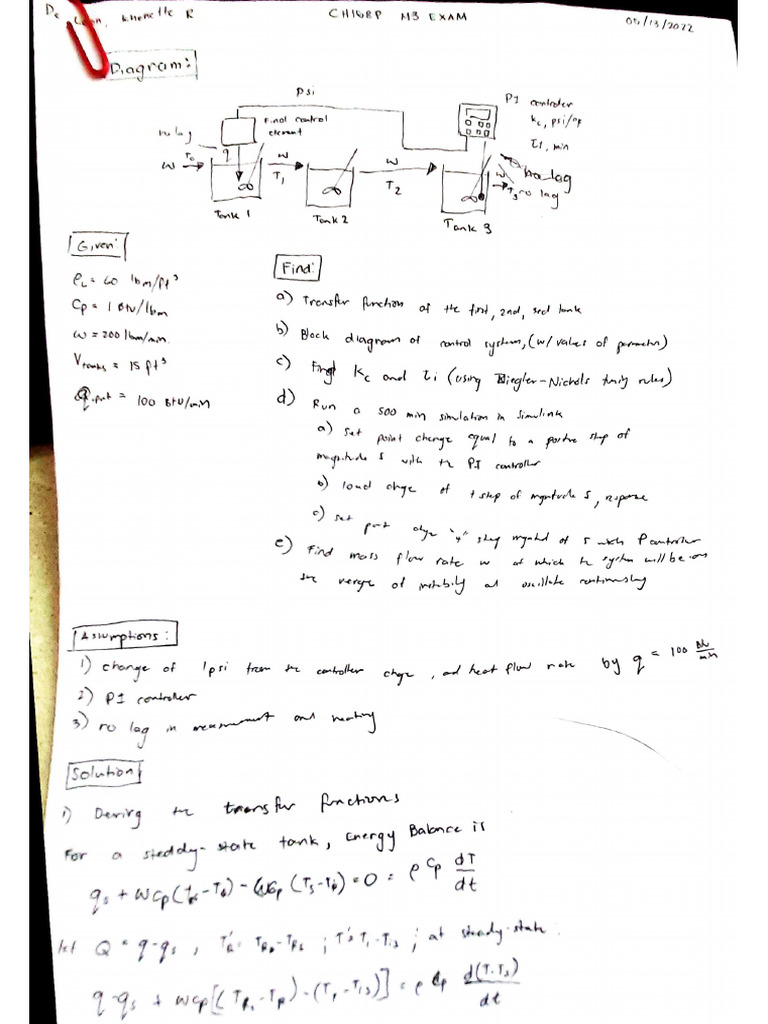 De Leon, Khenette R
CH168P M3 EXAM
05/13/2022
Diagram:
psi
PI controller
Kc, psi/°F
τI, min
Final control element
no lag
q
w
T0
w
T1
w
T2
w
T3
no lag
no lag
Tank 1
Tank 2
Tank 3
Given:
ρL = 60 lbm/ft³
Cp = 1 Btu/lbm
w = 200 lbm/min.
Vtanks = 15 ft³
= 100 BTU/min
Find:
a) Transfer function of the first, 2nd, 3rd tank
b) Block diagram of control system, (w/ values of parameter)
c) Find Kc and τi (using Ziegler-Nichols tuning rules)
d) Run a 500 min simulation in simulink
a) set point change equal to a positive step of
magnitude 5 with the PI controller
b) load chge of + step of magnitude 5, response
c) set point chge "+" step of 5 with P controller
e) Find mass flow rate w at which the system will be on
the verge of instability and oscillate continuously
Assumptions:
1) change of 1 psi from the controller chge, and heat flow rate by q = 100 Btu/min
2) PI controller
3) no lag in measurement and heating
Solution
1) Deriving the transfer functions
For a steady-state tank, Energy Balance is
= 0 = ρ Cp dT/dt
let Q = q-qs, ; at steady-state:
= ρ Cp d(T-Ts)/dt